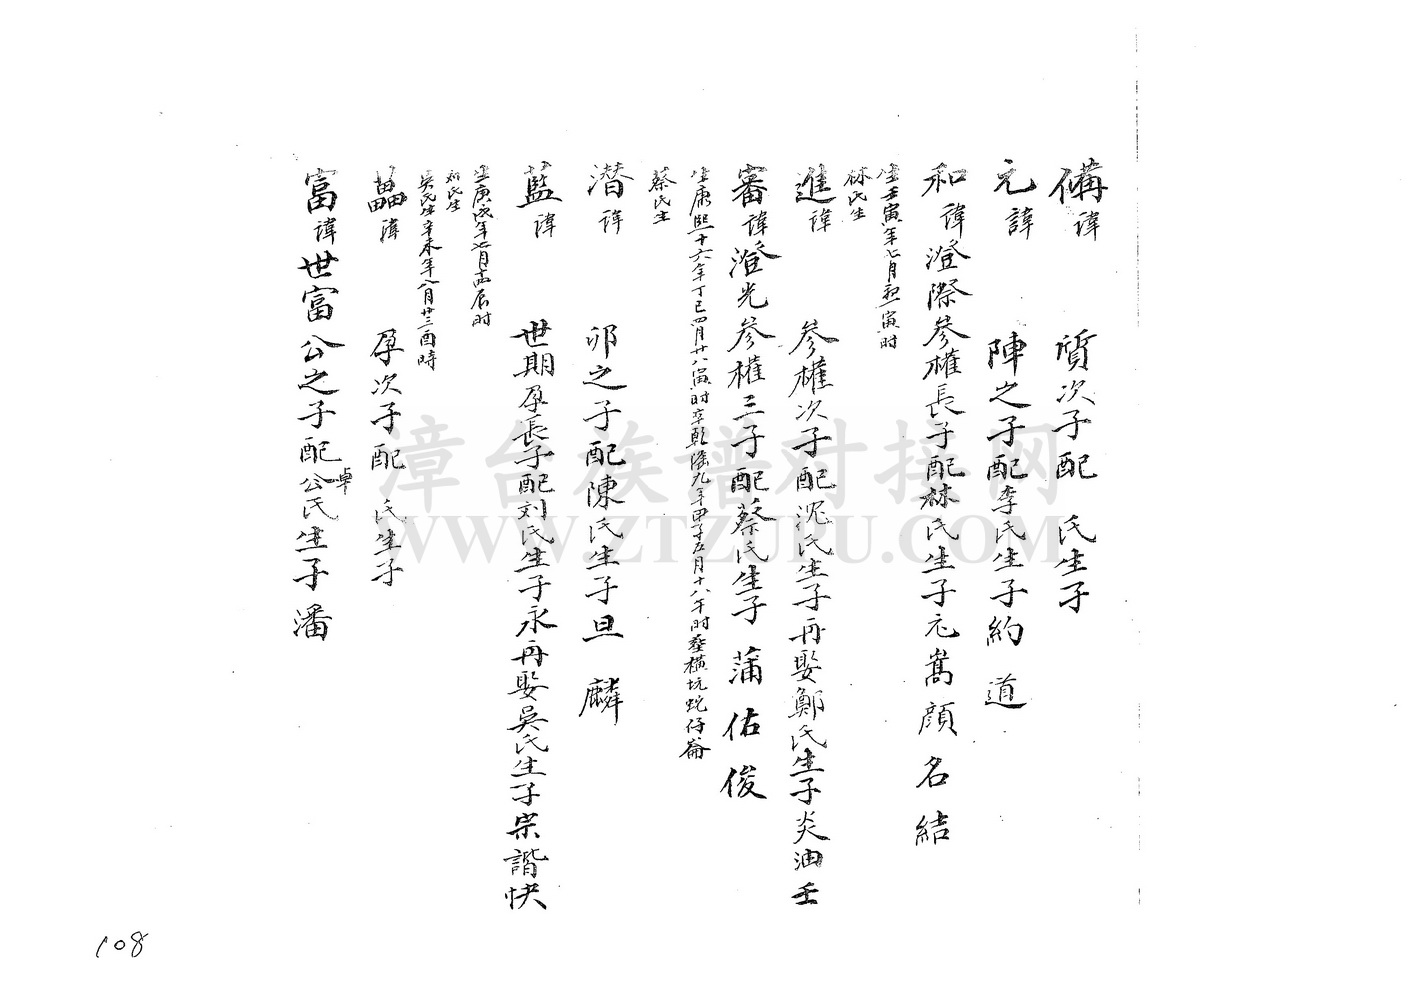 備諱 質次子配 氏生子
元諱 陣之子配李氏生子約道
和諱澄際参權長子配林氏生子元嵩顔名結
生壬寅年七月初一寅时
林氏生
進諱 参權次子配沈氏生子再娶鄭氏生子炎油壬
審諱澄光参權三子配蔡氏生子蒲佑俊
生康熙十六年丁巳四月廿八寅时卒乾隆九年甲子五月十八午时葬横坑蛇仔崙
蔡氏生
潜諱 卯之子配陳氏生子旦麟
藍諱 世期孕長子配刘氏生子永再娶吳氏生子宗諧快
生庚戌年七月十四辰时
刘氏生
吳氏生辛未年八月廿三酉時
諱 孕次子配 氏生子
富諱世富公之子配卓公氏生子潘
漳台族谱对接网
WWW.ZTZUPU.COM
108